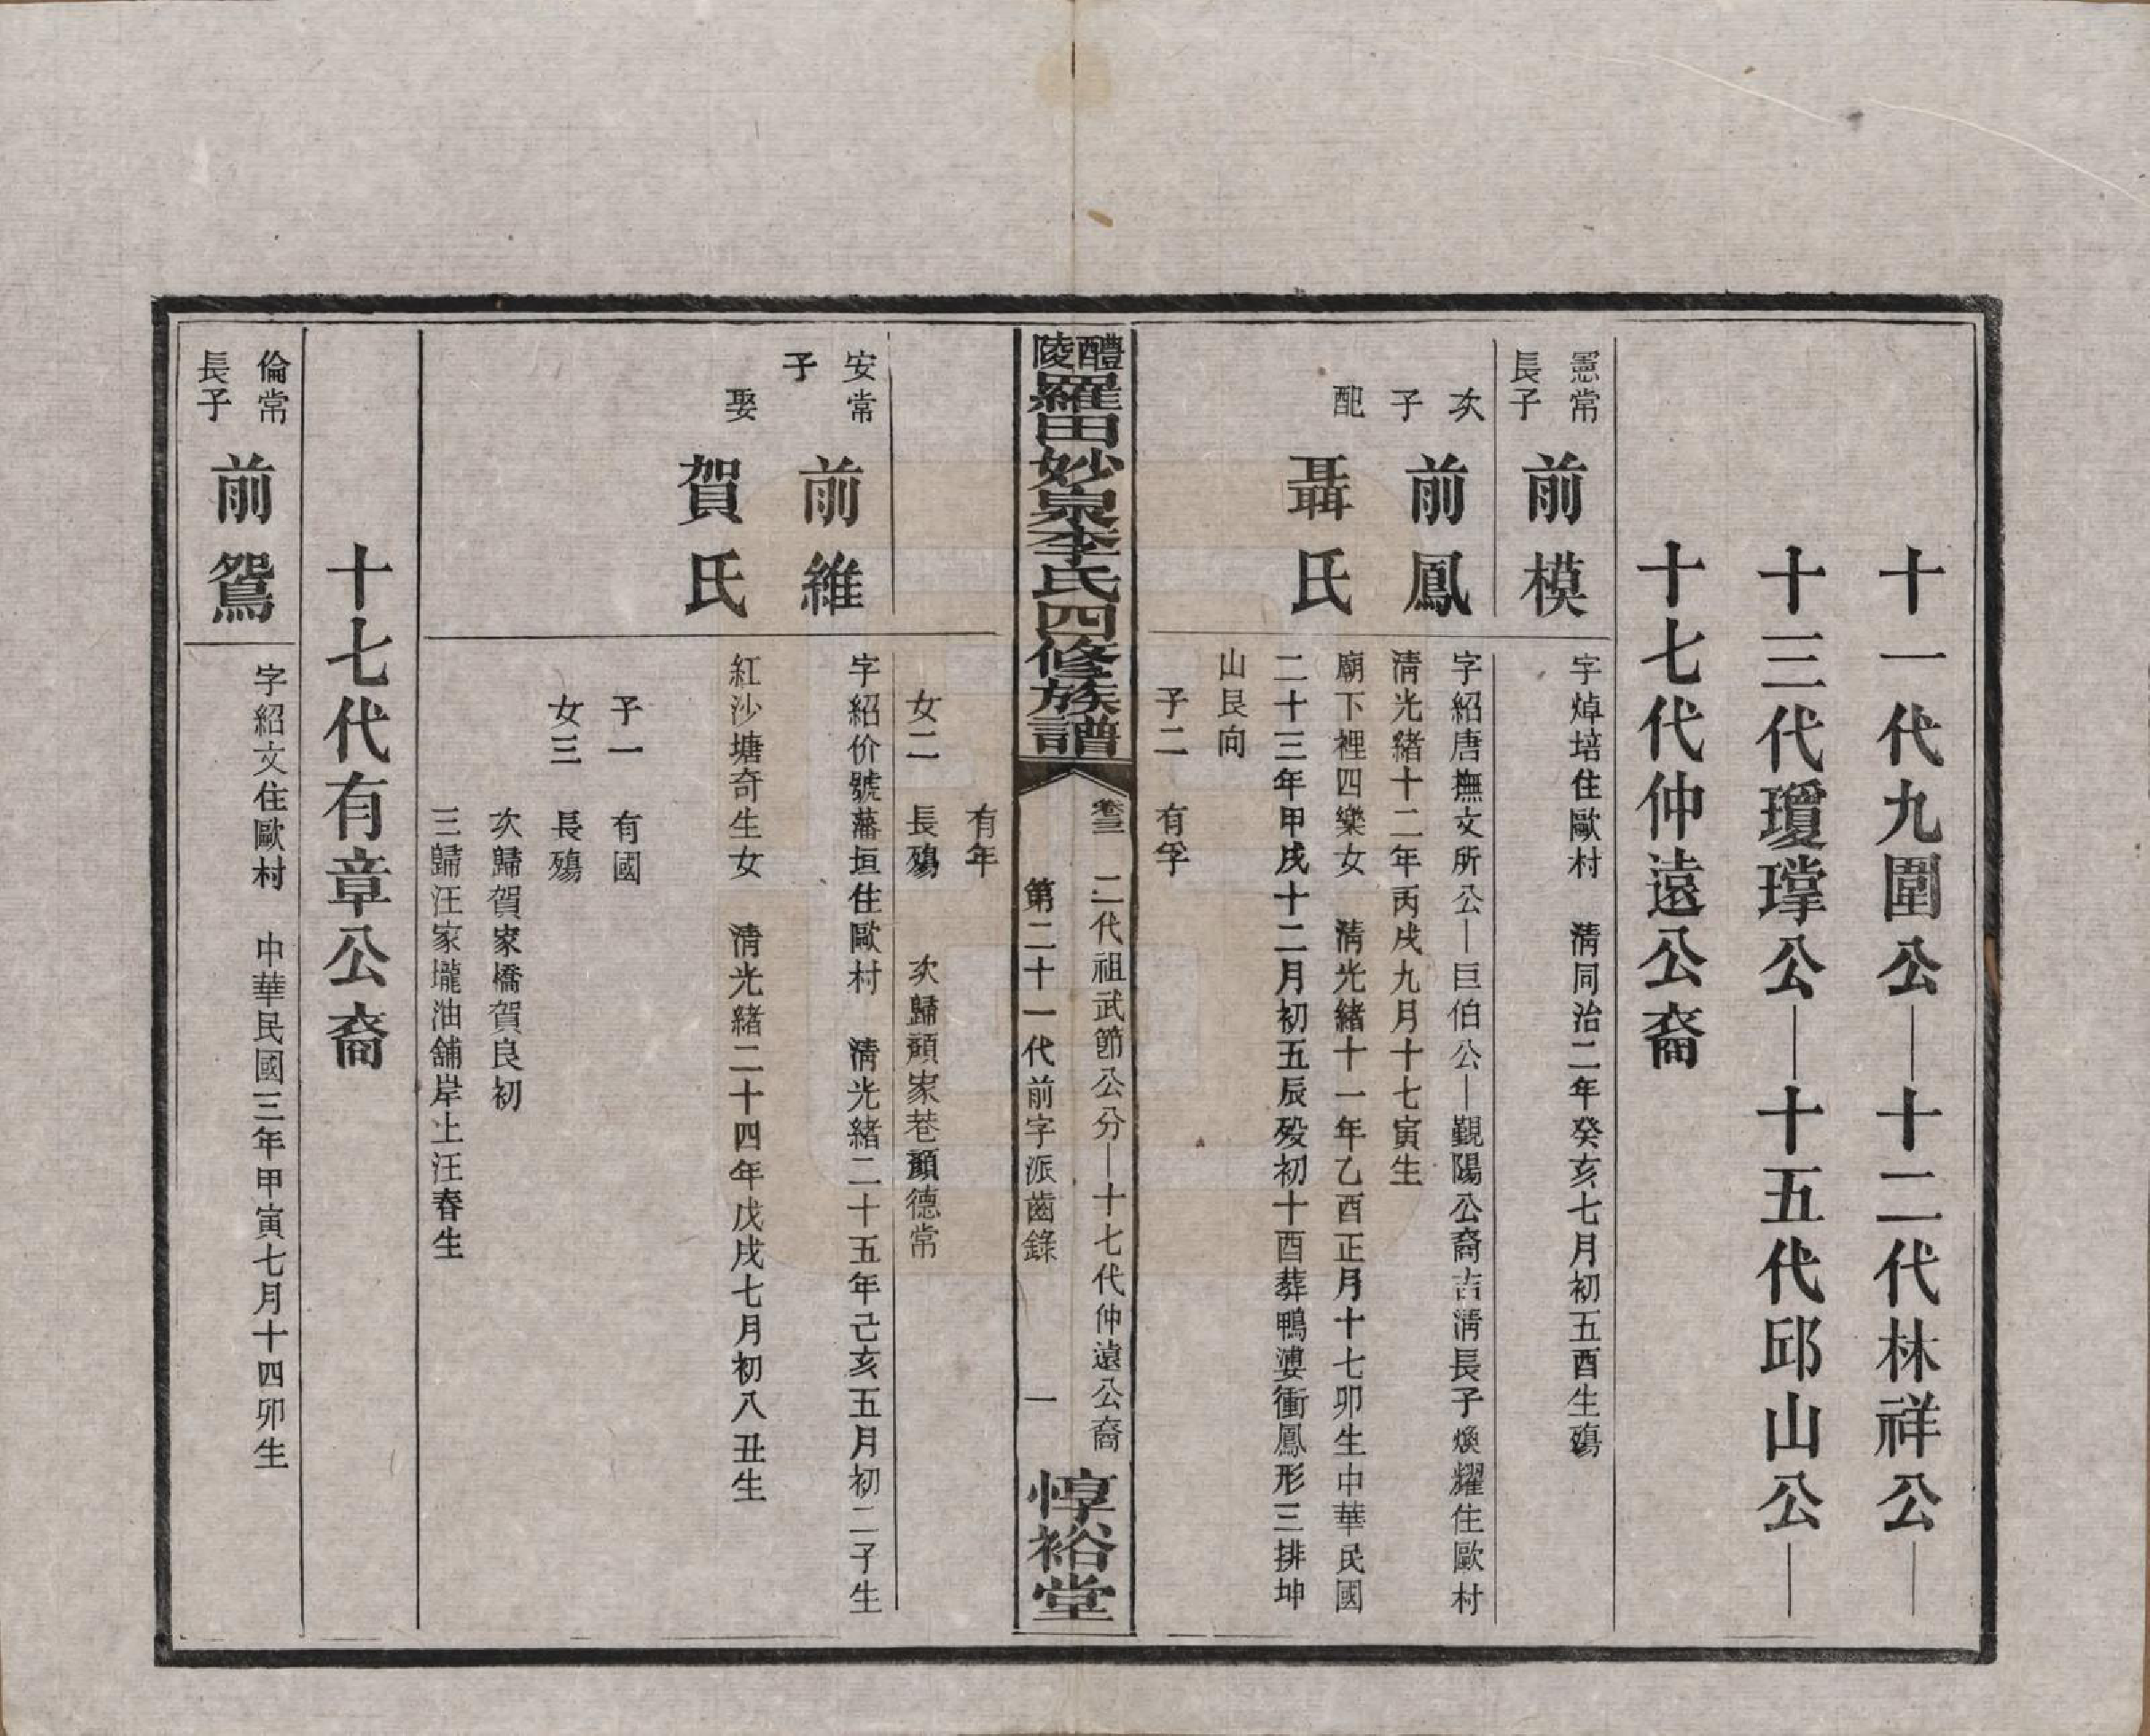 十一代九圍公—十二代林祥公—
十三代瓊璋公—十五代邱山公—
十七代仲遠公裔
憲常
長子
前模
字焯培住歐村　淸同治二年癸亥七月初五酉生殤
次
子
前鳳
字紹唐撫文所公—巨伯公—覲陽公裔吉淸長子煥耀住歐村
淸光緒十二年丙戌九月十七寅生
配
聶氏
廟下裡四樂女　淸光緒十一年乙酉正月十七卯生中華民國
二十三年甲戌十二月初五辰歿初十酉葬鴨婆衝鳳形三排坤
山艮向
子二　有孚
醴陵羅田妙泉李氏四修族譜
卷三　二代祖武節公分—十七代仲遠公裔
第二十一代前字派齒錄　一
惇裕堂
有年
女二　長殤　次歸顏家巷顏德常
安常
子
前維
字紹价號藩垣住歐村　淸光緒二十五年己亥五月初二子生
娶
賀氏
紅沙塘奇生女　淸光緒二十四年戊戌七月初八丑生
子一　有國
女三　長殤
次歸賀家橋賀良初
三歸汪家壠油舖岸上汪春生
十七代有章公裔
倫常
長子
前鴛
字紹文住歐村　中華民國三年甲寅七月十四卯生